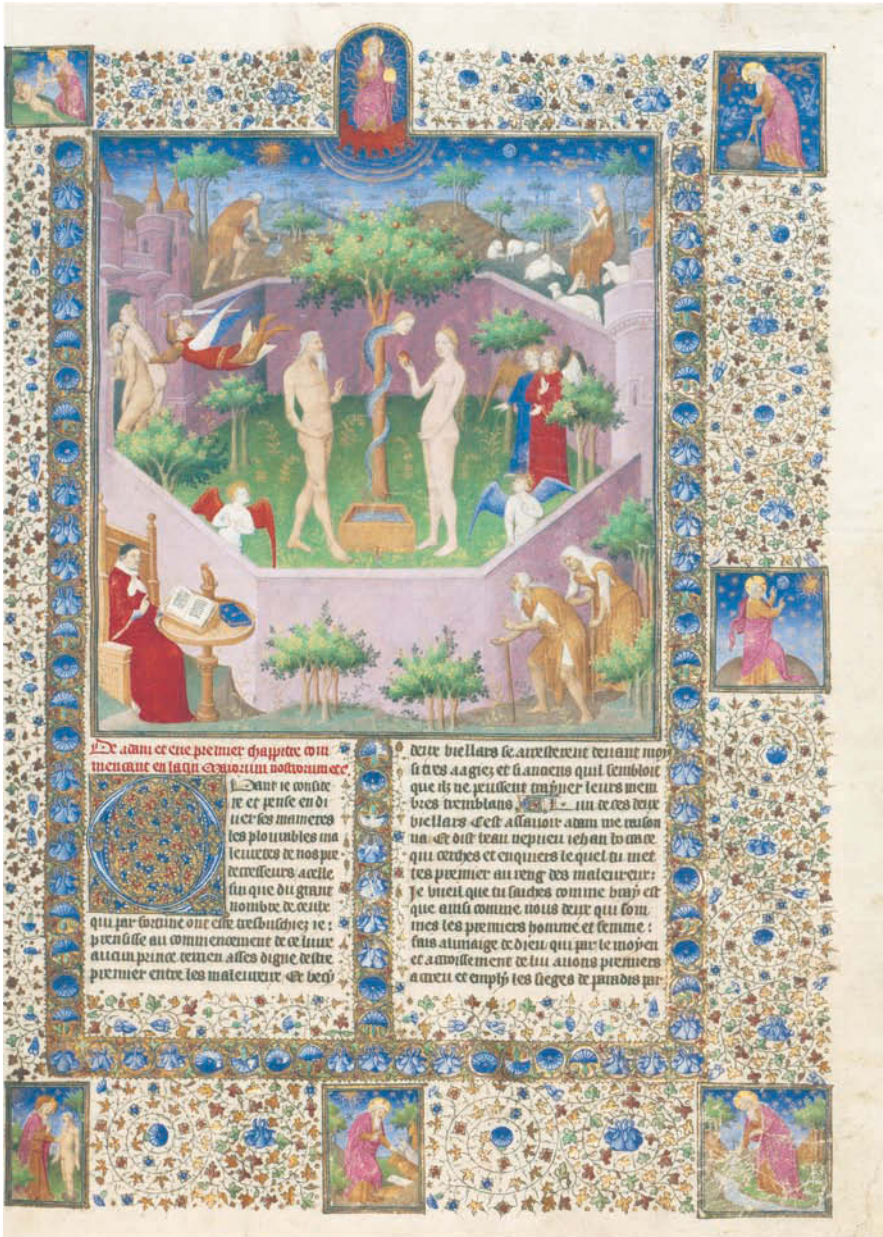 De adam et eue premier chappitre com
mencant en latin Maiorum nostrorum etc
Quant ie conside
re et pense en di
uerses manieres
les plourables ma
leuretes de nos pre
decesseurs a celle
fin que du grant
nombre de ceulx
qui par fortune ont este tresbuschiez ie:
prensisse au commencement de ce liure
aucun prince terrien asses digne destre
premier entre les maleureux Et vecy
deux viellars se arresterent deuant moy
si tres aagiez et si anciens quil sembloit
que ilz ne peussent trayner leurs mem
bres tremblans. Lun de ces deux
viellars Cest assauoir adam me raison
na Et dist beau nepueu iehan bocace
qui cerches et enquiers lequel tu met
tes premier au reng des maleureux:
Je vueil que tu saiches comme vray est
que ainsi comme nous deux qui som
mes les premiers homme et femme:
fais a limaige de dieu qui par le moyen
et accroissement de lui auons premiers
acreu et emply les sieges de paradis par